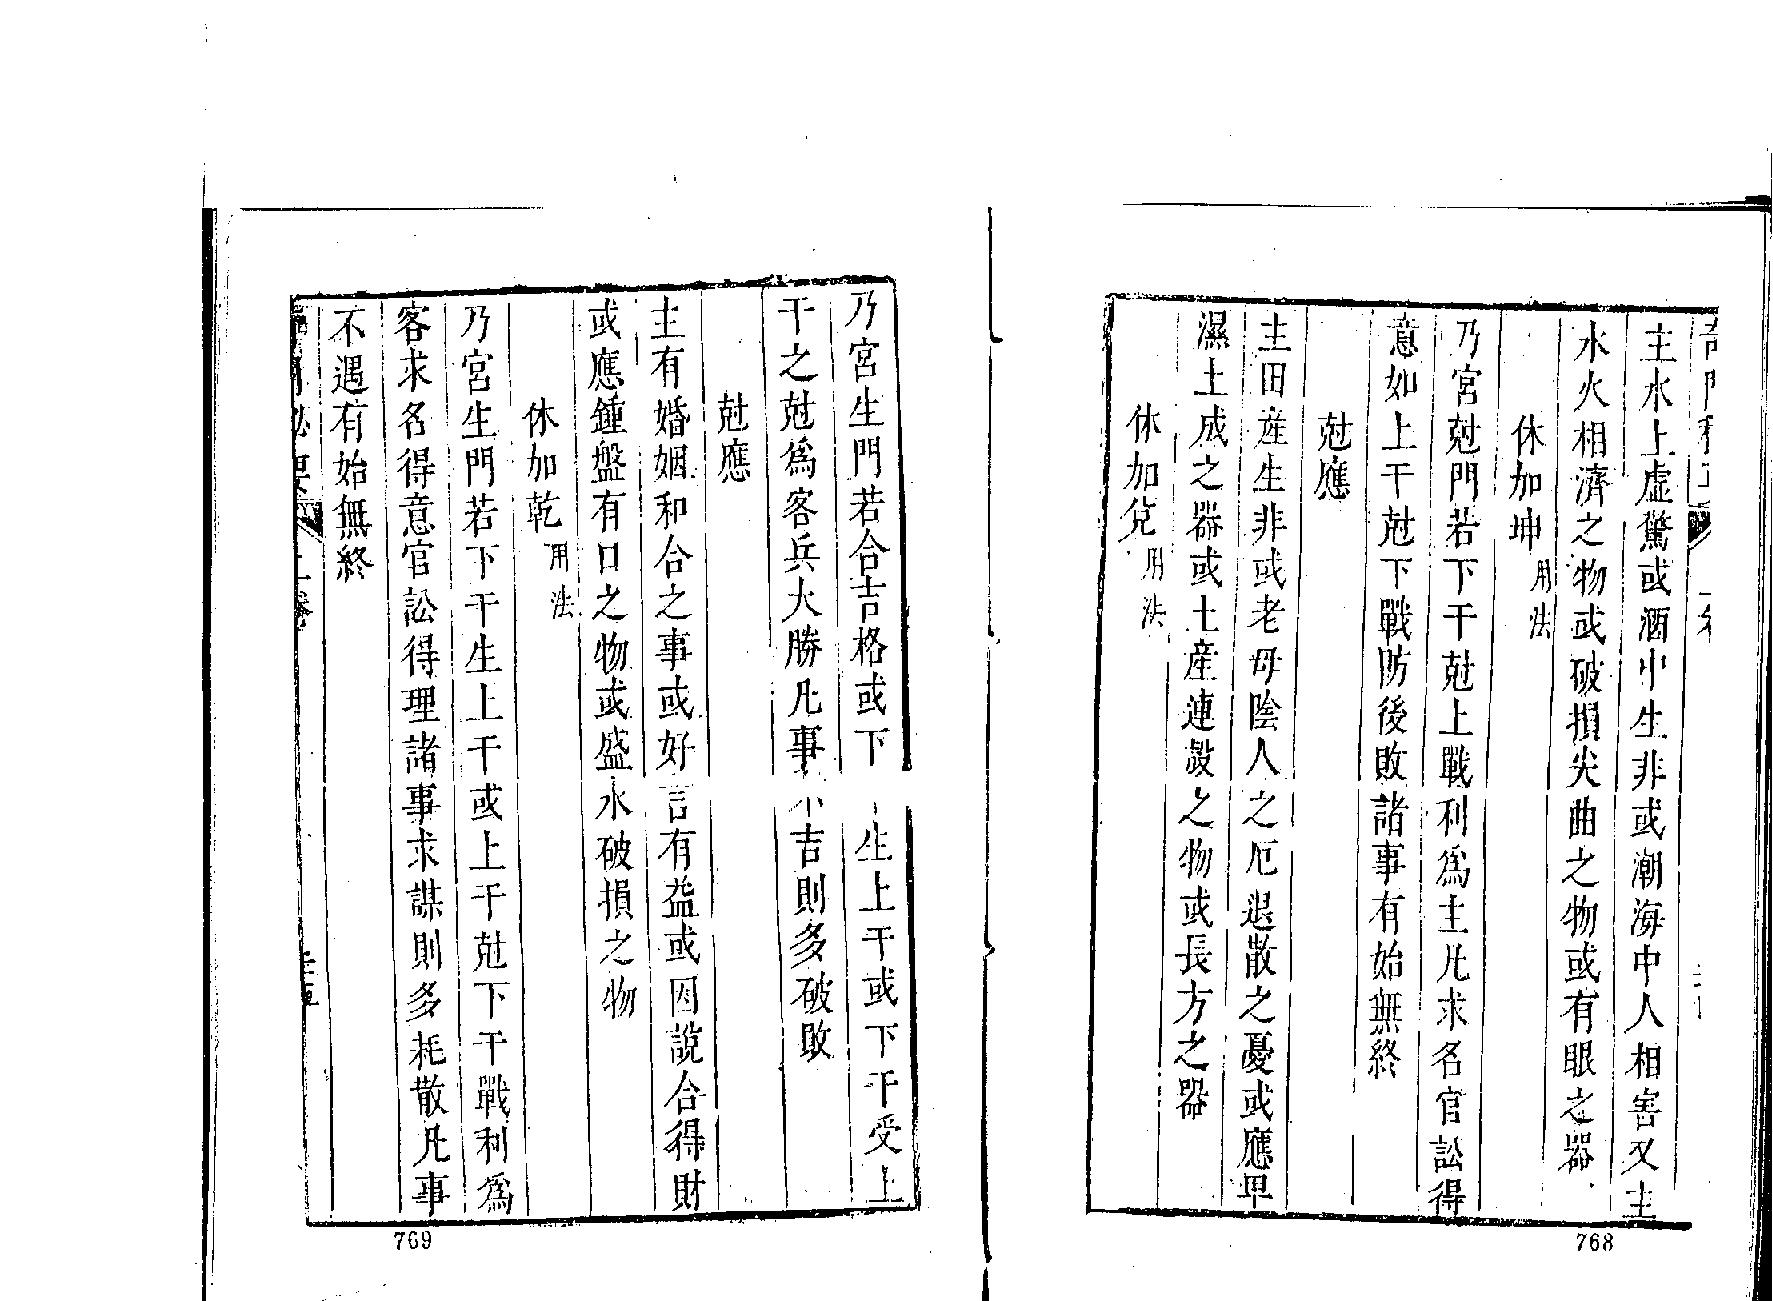 主水上虛驚或酒中生非或潮海中人相害又主
水火相濟之物或破損尖曲之物或有眼之器
休加坤 用法
乃宮尅門若下干尅上戰利爲主凡求名官訟得
意如上干尅下戰防後敗諸事有始無終
尅應
主田産生非或老母陰人之厄退散之憂或應
濕土成之器或土産連設之物或長方之器
休加兌 用法
768
乃宮生門若合吉格或下 生上干或下干受上
干之尅爲客兵大勝凡事不吉則多破敗
尅應
主有婚姻和合之事或好言有益或因說合得財
或應鍾盤有口之物或盛水破損之物
休加乾 用法
乃宮生門若下干生上干或上干尅下干戰利爲
客求名得意官訟得理諸事求謀則多耗散凡事
不遇有始無終
769